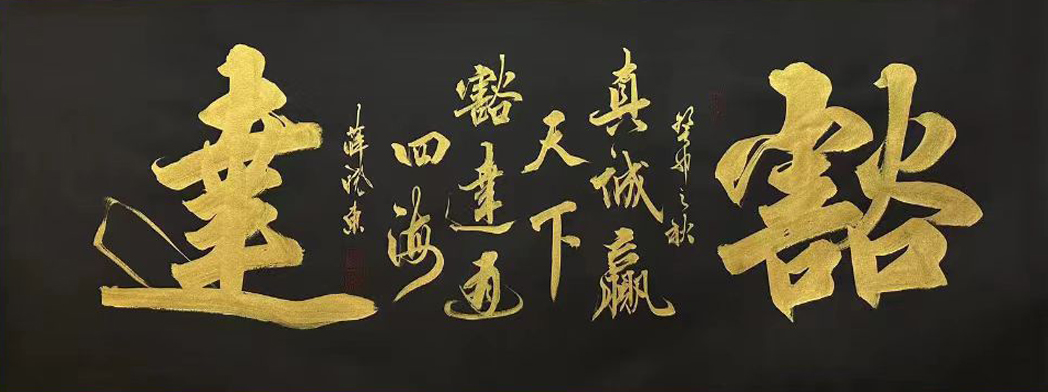 豁
癸卯之秋
真诚赢
天下
豁達通
四海
達